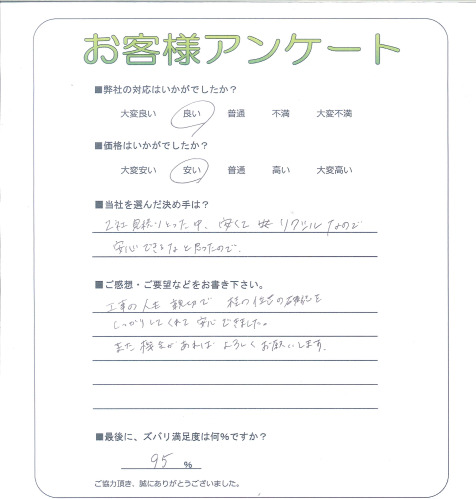 お客様アンケート
■弊社の対応はいかがでしたか？
大変良い 良い 普通 不満 大変不満
■価格はいかがでしたか？
大変安い 安い 普通 高い 大変高い
■当社を選んだ決め手は？
2社見積りとった中、安くて リクシルなので
安心できるなと思ったので。
■ご感想・ご要望などをお書き下さい。
工事の人も 親切で 柱の位置の確認を
しっかりしてくれて 安心できました。
また機会があれば よろしくお願いします。
■最後に、ズバリ満足度は何％ですか？
95 ％
ご協力頂き、誠にありがとうございました。